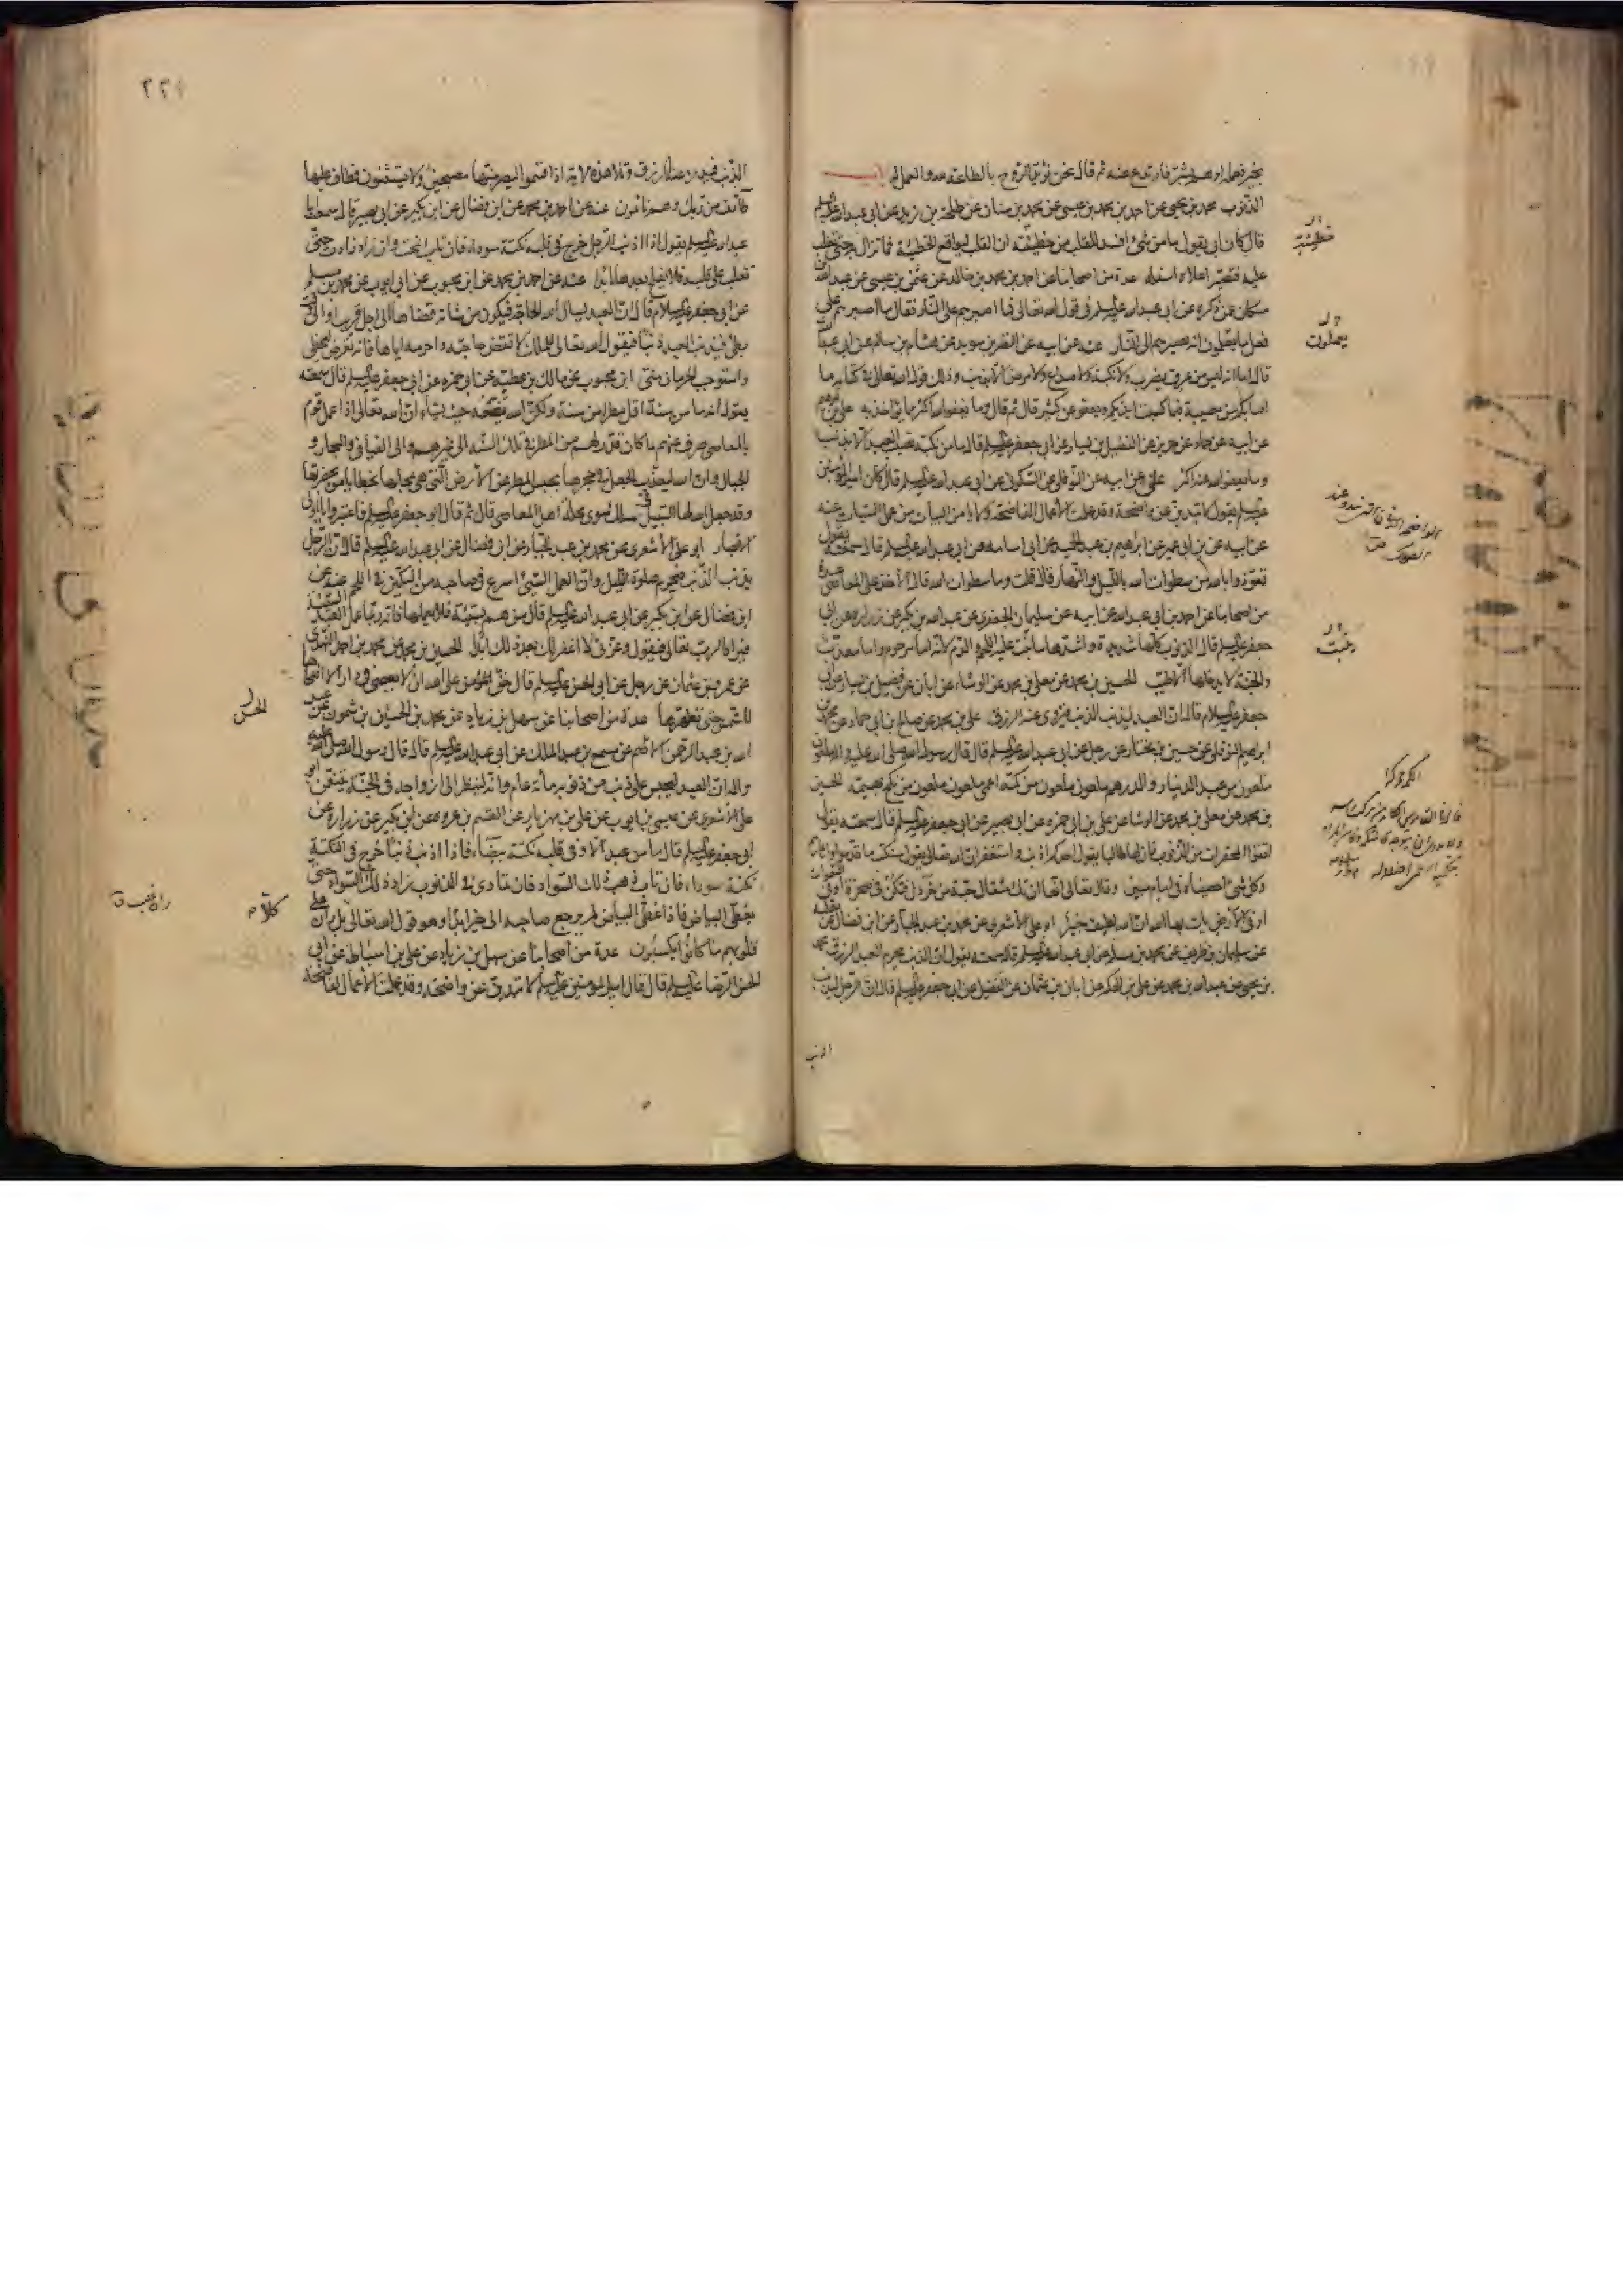 بخير فعمله او هم بشر فارتدع عنه ثم قال نحن نؤيد الروح بالطاعة لله والعمل له باب
الذنوب محمد بن يحيى عن احمد بن محمد بن عيسى عن محمد بن سنان عن طلحة بن زيد عن ابي عبد الله عليه السلم
قال كان ابي يقول ما من شئ افسد للقلب من خطيئة ان القلب ليواقع الخطيئة فما تزال حتى تغلب
عليه فتصير اعلاه اسفله عدة من اصحابنا عن احمد بن محمد بن خالد عن عثمن بن عيسى عن عبد الله بن
مسكان عمن ذكره عن ابي عبد الله عليه السلم في قول الله تعالى فما اصبرهم على النار فقال ما اصبرهم على
فعل ما يعملون انه يصيرهم الى النار عنه عن ابيه عن النضر بن سويد عن هشام بن سالم عن ابي عبد الله
قال اما انه ليس من عرق يضرب ولا نكبة ولا صداع ولا مرض الا بذنب وذلك قول الله تعالى في كتابه وما
اصابكم من مصيبة فبما كسبت ايديكم ويعفو عن كثير قال ثم قال وما يعفو الله اكثر مما يؤاخذ به علي بن ابرهيم
عن ابيه عن حماد عن حريز عن الفضيل بن يسار عن ابي جعفر عليه السلم قال ما من نكبة تصيب العبد الا بذنب
وما يعفو الله عنه اكثر علي عن ابيه عن النوفلي عن السكوني عن ابي عبد الله عليه السلم قال كان امير المؤمنين
عليه السلم يقول لا تبدين عن واضحة وقد عملت الاعمال الفاضحة ولا يامن البيات من عمل السيئات عنه
عن ابيه عن ابن ابي عمير عن ابرهيم بن عبد الحميد عن ابي اسامة عن ابي عبد الله عليه السلم قال سمعته يقول
تعوذوا بالله من سطوات الله بالليل والنهار قال قلت وما سطوات الله قال الاخذ على المعاصي عدة
من اصحابنا عن احمد بن ابي عبد الله عن ابيه عن سليمان الجعفري عن عبد الله بن بكير عن زرارة عن ابي
جعفر عليه السلم قال الذنوب كلها شديدة واشدها ما نبت عليه اللحم والدم لانه اما مرحوم واما معذب
والجنة لا يدخلها الا طيب الحسين بن محمد عن معلى بن محمد عن الوشاء عن ابان عن فضيل بن يسار عن ابي
جعفر عليه السلام قال ان العبد ليذنب الذنب فيزوى عنه الرزق علي بن محمد عن صالح بن ابي حماد عن محمد بن
ابراهيم النوفلي عن حسين بن مختار عن رجل عن ابي عبد الله عليه السلم قال قال رسول الله صلى الله عليه واله ملعون
ملعون من عبد الدينار والدرهم ملعون ملعون من كمه اعمى ملعون ملعون من نكح بهيمة الحسين
بن محمد عن معلى بن محمد عن الوشا عن علي بن ابي حمزة عن ابي بصير عن ابي جعفر عليه السلم قال سمعته يقول
اتقوا المحقرات من الذنوب فان لها طالبا يقول احدكم اذنب واستغفر ان الله تعالى يقول سنكتب ما قدموا واثارهم
وكل شئ احصيناه في امام مبين وقال تعالى انها ان تك مثقال حبة من خردل فتكن في صخرة او في السموات
او في الارض يات بها الله ان الله لطيف خبير ابو علي الاشعري عن محمد بن عبد الجبار عن ابن فضال عن ثعلبة
عن سليمان بن طريف عن محمد بن مسلم عن ابي عبد الله عليه السلم قال سمعته يقول ان الذنب يحرم العبد الرزق محمد
بن يحيى عن عبد الله بن محمد عن علي بن الحكم عن ابان بن عثمان عن الفضيل عن ابي جعفر عليه السلم قال ان الرجل ليذنب
خطيئته
يعملون
الذنب
الذنب فيدرء عنه الرزق وتلا هذه الاية اذ اقسموا ليصرمنها مصبحين ولا يستثنون فطاف عليها
طائف من ربك وهم نائمون عنه عن احمد بن محمد عن ابن فضال عن ابن بكير عن ابي بصير قال سمعت ابا
عبد الله عليه السلم يقول اذا اذنب الرجل خرج في قلبه نكتة سوداء فان تاب انمحت وان زاد زادت حتى
تغلب على قلبه فلا يفلح بعدها ابدا عنه عن احمد بن محمد عن ابن محبوب عن ابي ايوب عن محمد بن مسلم
عن ابي جعفر عليه السلام قال ان العبد يسال الله الحاجة فيكون من شانه قضاءها الى اجل قريب او الى وقت
بطئ فيذنب العبد ذنبا فيقول الله تعالى للملك لا تقض حاجته واحرمه اياها فانه تعرض لسخطي
واستوجب الحرمان مني ابن محبوب عن مالك بن عطية عن ابي حمزة عن ابي جعفر عليه السلم قال سمعته
يقول انه ما من سنة اقل مطرا من سنة ولكن الله يضعه حيث يشاء ان الله تعالى اذا عمل قوم
بالمعاصي صرف عنهم ما كان قدر لهم من المطر في تلك السنة الى غيرهم والى الفيافي والبحار و
الجبال وان الله ليعذب الجعل في جحرها بحبس المطر عن الارض التي هي بمحلها بخطايا من بحضرتها
وقد جعل الله لها السبيل في مسلك سوى محلة اهل المعاصي قال ثم قال ابو جعفر عليه السلم فاعتبروا يا اولي
الابصار ابو علي الاشعري عن محمد بن عبد الجبار عن ابن فضال عن ابي عبد الله عليه السلم قال ان الرجل
يذنب الذنب فيحرم صلوة الليل وان العمل السيئ اسرع في صاحبه من السكين في اللحم عنه عن
ابن فضال عن ابن بكير عن ابي عبد الله عليه السلم قال من هم بسيئة فلا يعملها فانه ربما عمل العبد السيئة
فيراه الرب تعالى فيقول وعزتي لا اغفر لك بعد ذلك ابدا الحسين بن محمد عن محمد بن احمد النهدي
عن عمرو بن عثمان عن رجل عن ابي الحسن عليه السلم قال حق المؤمن على الله ان لا يعصى في دار الا اضحاها
للشمس حتى تطهرها عدة من اصحابنا عن سهل بن زياد عن محمد بن الحسين بن شمون عن عبد
الله بن عبد الرحمن الاصم عن مسمع بن عبد الملك عن ابي عبد الله عليه السلم قال قال رسول الله صلى الله عليه
واله ان العبد ليحبس على ذنب من ذنوبه مائة عام وانه لينظر الى ازواجه في الجنة يتنعمن ابو
علي الاشعري عن عيسى بن ايوب عن علي بن مهزيار عن القسم بن عروة عن ابن بكير عن زرارة عن
ابي جعفر عليه السلم قال ما من عبد الا وفي قلبه نكتة بيضاء فاذا اذنب ذنبا خرج في النكتة
نكتة سوداء فان تاب ذهب ذلك السواد فان تمادى في الذنوب زاد ذلك السواد حتى
يغطي البياض فاذا غطى البياض لم يرجع صاحبه الى خير ابدا وهو قول الله تعالى بل ران على
قلوبهم ما كانوا يكسبون عدة من اصحابنا عن سهل بن زياد عن علي بن اسباط عن ابي
الحسن الرضا عليه السلم قال قال امير المؤمنين عليه السلم لا تبدين عن واضحة وقد عملت الاعمال الفاضحة
الحسن
كلا